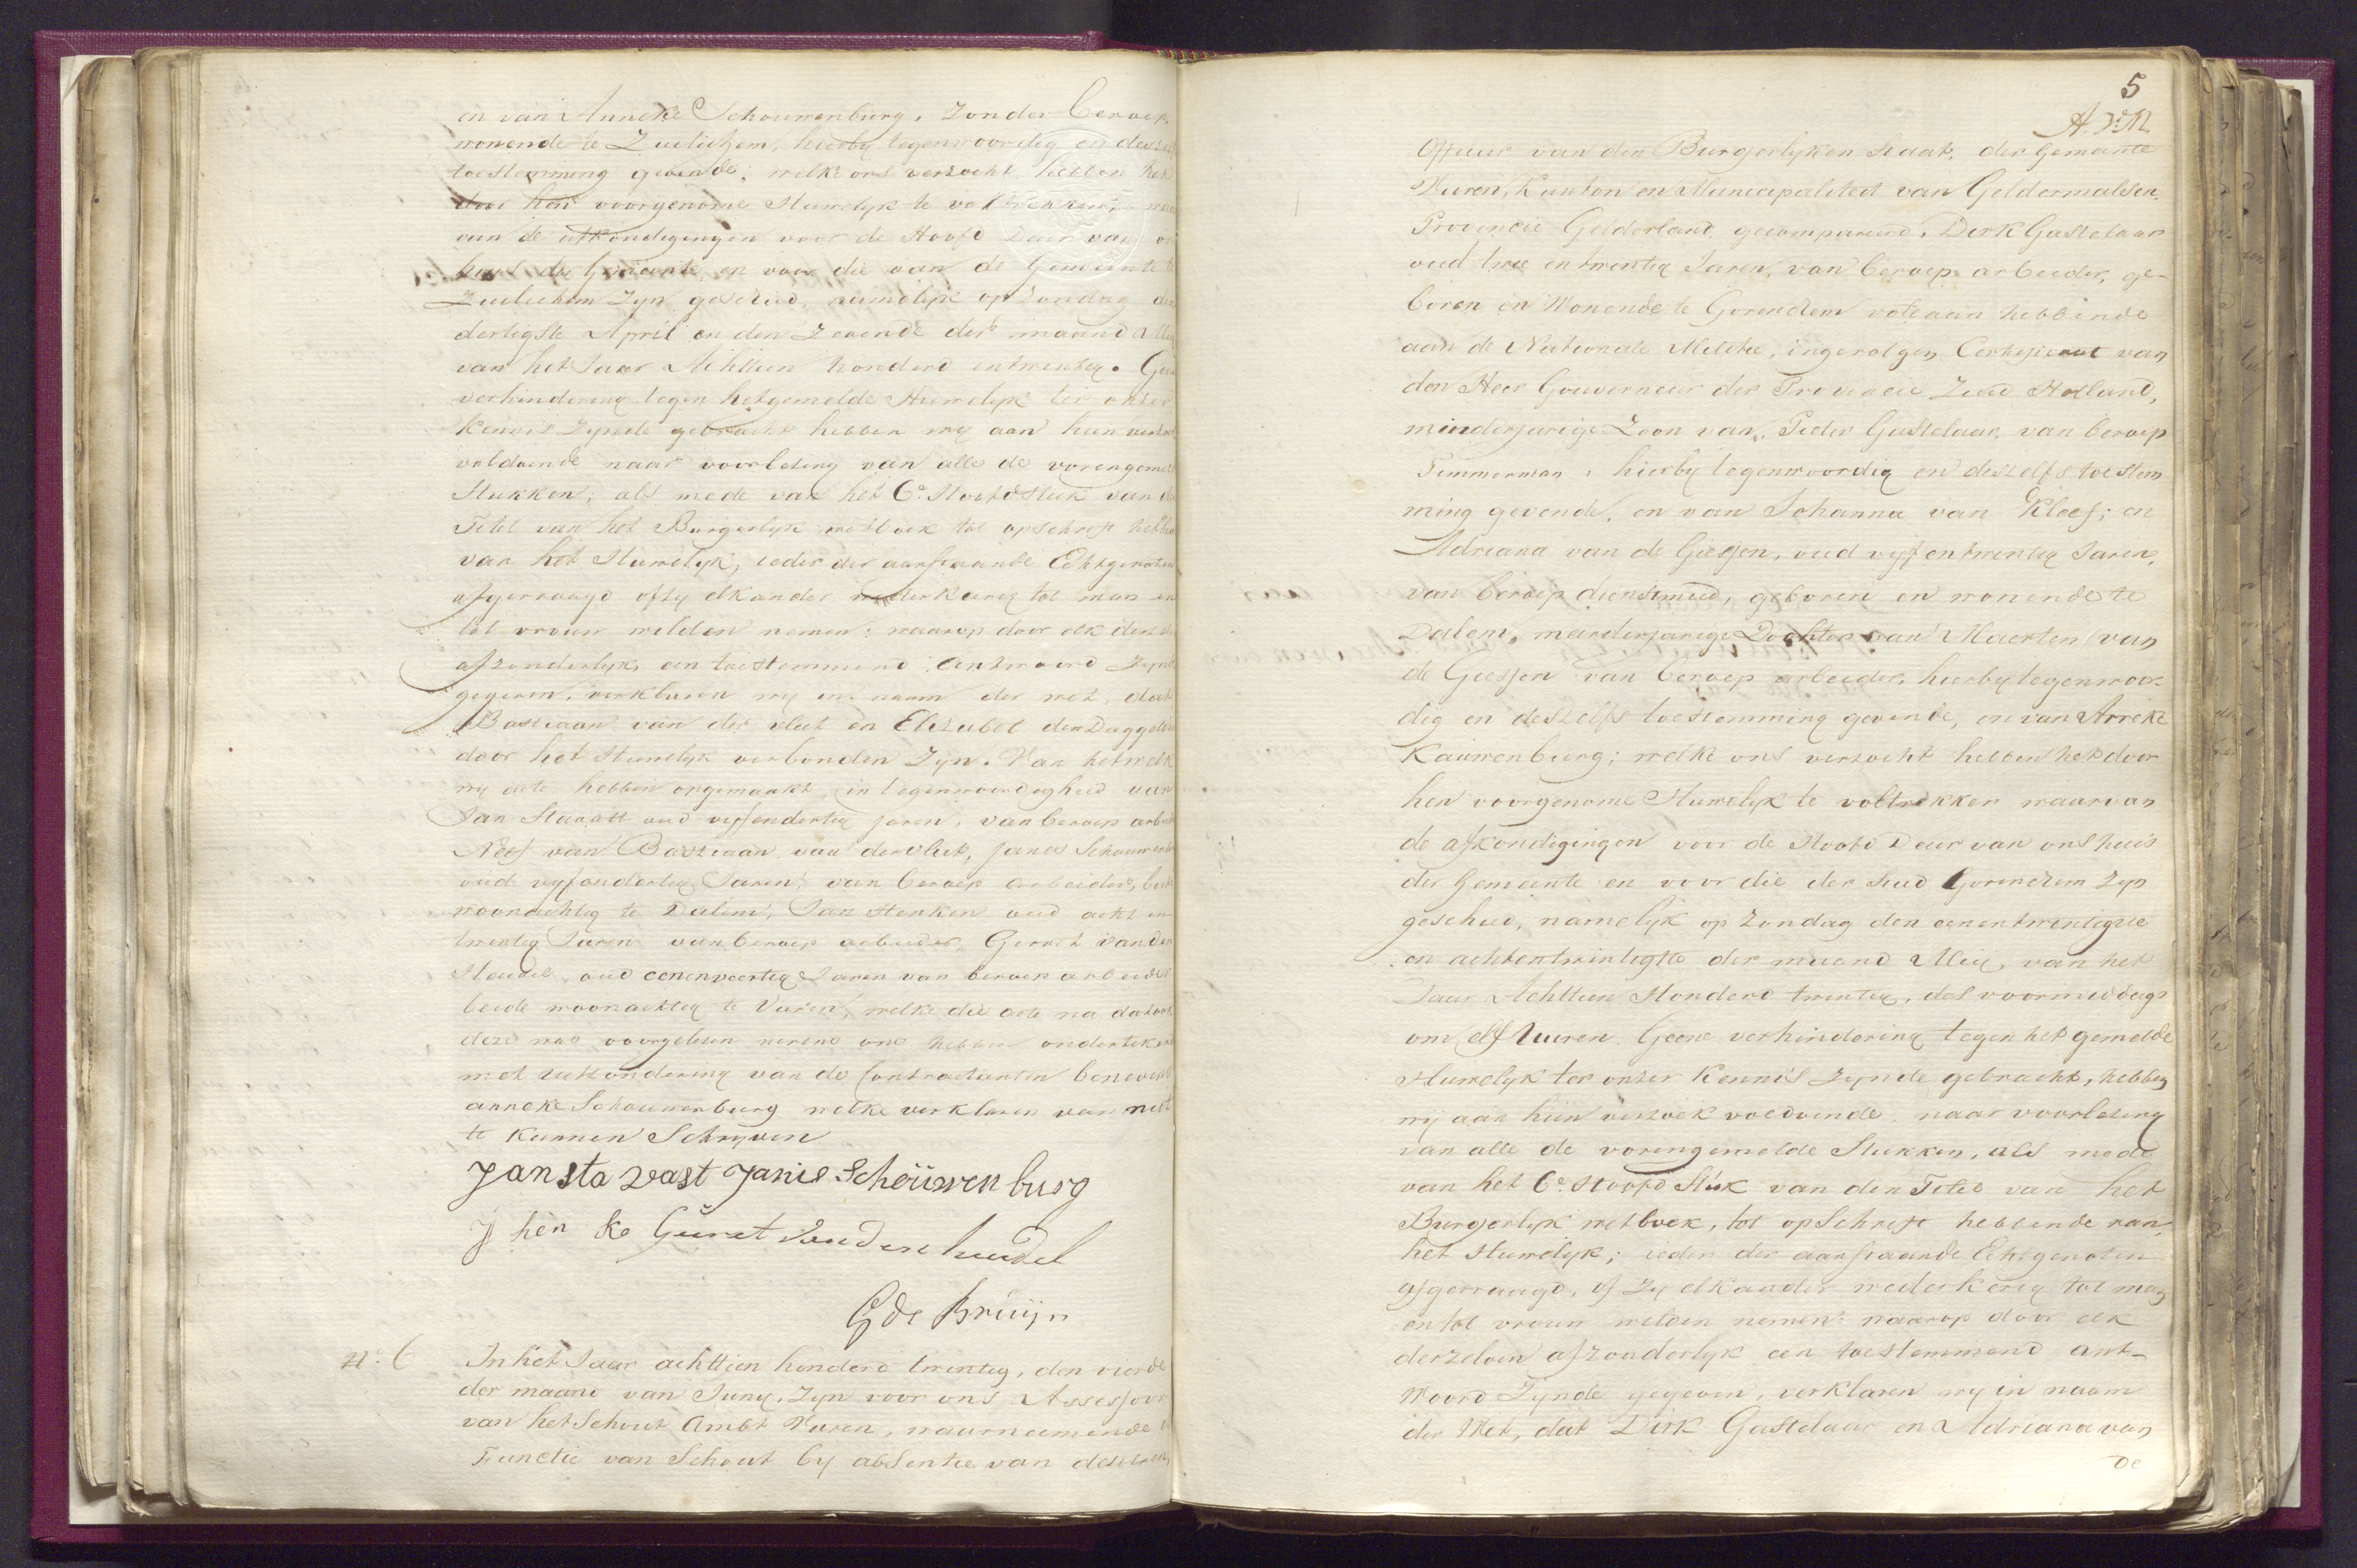 en van Anneke Schouwenburg, zonder beroep
wonende te Zuilichem, hierby tegenwoordig en deszelfs
toestemming gevende, welke ons verzocht hebben het
door hen voorgenome Huwelyk te voltrekken, waar
van de afkondigingen voor de Hoofd Deur van ons
huis der Gemeente, en voor die van de Gemeente te
Zuilichem zyn geschied, namelyk op Zondag den
dertigste April en den Zevende der maand Mey
van het Jaar Achttien honderd en twintig. Geen
verhindering tegen hetgemelde Huwelyk ter onzer
Kennis zynde gebracht hebben wy aan hun verzoek
voldoende naar voorlezing van alle de vorengemelde
Stukken, als mede van het 6e Hoofdstuk van den
Titel van het Burgerlyk wetboek tot opschrift hebbende
van het Huwelyk, ieder der aanstaande Echtgenoten
afgevraagd of zy elkander wederkerig tot man en
tot vrouw wilden nemen; waarop door elk derzelve
afzonderlyk een toestemmend antwoord zynde
gegeven, verklaren wy in naam der wet, dat
Bastiaan van der vliet en Elizabet den Daggelder
door het Huwelyk verbonden zyn. Van hetwelk
wy acte hebben opgemaakt, in tegenwoordigheid van
Jan Stavast oud vyfendertig jaren, van beroep arbeider
Neef van Bastiaan van der vliet, Janis Schouwenburg
oud vyfendertig Jaren, van beroep arbeider, beide
woonachtig te Dalem, Jan Henken oud acht en
twintig Jaren van beroep arbeider Gerrit van den
Heuvel, oud eenenveertig Jaren van beroep arbeider
beide woonachtig te Vuren, welke die acte na dat ook
deze was voorgelezen nevens ons hebben ondertekend
met uitzondering van de Contractanten benevens
anneke Schouwenburg welke verklaren van niet
te kunnen Schryven
Jan sta vast Janis Schouwenburg
J hen ke Gerret van den heuvel
G de Bruijn
No. 6 In het Jaar achttien honderd twintig, den vierde
der maand van Juny, zyn voor ons Assessoor
van het Schout Ambt Vuren, waarneemende de
Functie van Schout by absentie van deszelven,
5
Officier van den Burgerlyken Staat, der Gemeente
Vuren, Kanton en Municipaliteit van Geldermalsen,
Provincie Gelderland gecompareerd, Dirk Gastelaar
oud twee en twintig Jaren, van beroep arbeider, ge-
boren en Wonende te Gorinchem voldaan hebbende
aan de Nationale Militie, ingevolgen Certificaat van
den Heer Gouverneur der Provincie Zuid Holland,
minderjarige Zoon van Pieter Gastelaar, van beroep
Timmerman, hierby tegenwoordig en deszelfs toestem
ming gevende, en van Johanna van Kleef; en
Adriana van de Giessen, oud vyf en twintig Jaren,
van beroep dienstmeid, geboren en wonende te
Dalem, meerderjarige Dochter van Maerten van
de Giessen van beroep arbeider, hierby tegenwoor-
dig en deszelfs toestemming gevende, en van Arreke
Kauwenburg; welke ons verzocht hebben het door
hen voorgenome Huwelyk te voltrekken waarvan
de afkondigingen voor de Hoofd Deur van ons huis
der Gemeente en voor die der Stad Gorinchem zyn
geschied, namelyk op zondag den eenentwintigste
en achtentwintigste der maand Mey, van het
Jaar Achttien Honderd twintig, des voormiddags
om elf Uuren. Geene verhindering tegen het gemelde
Huwelyk ter onzer Kennis zynde gebracht, hebben
wy aan hun verzoek voldoende naar voorlezing
van alle de vorengemelde Stukken, als mede
van het 6e Hoofd Stuk van den Titel van het
Burgerlyk wetboek, tot opSchrift hebbende van
het Huwelyk; ieder der aanstaande Echtgenoten
afgevraagd, of zy elkander wederkerig tot man
en tot vrouw wilden nemen: waarop door elk
derzelven afzonderlyk een toestemmend ant-
woord zynde gegeven, verklaren wy in naam
der Wet, dat Dirk Gastelaar en Adriana van
de